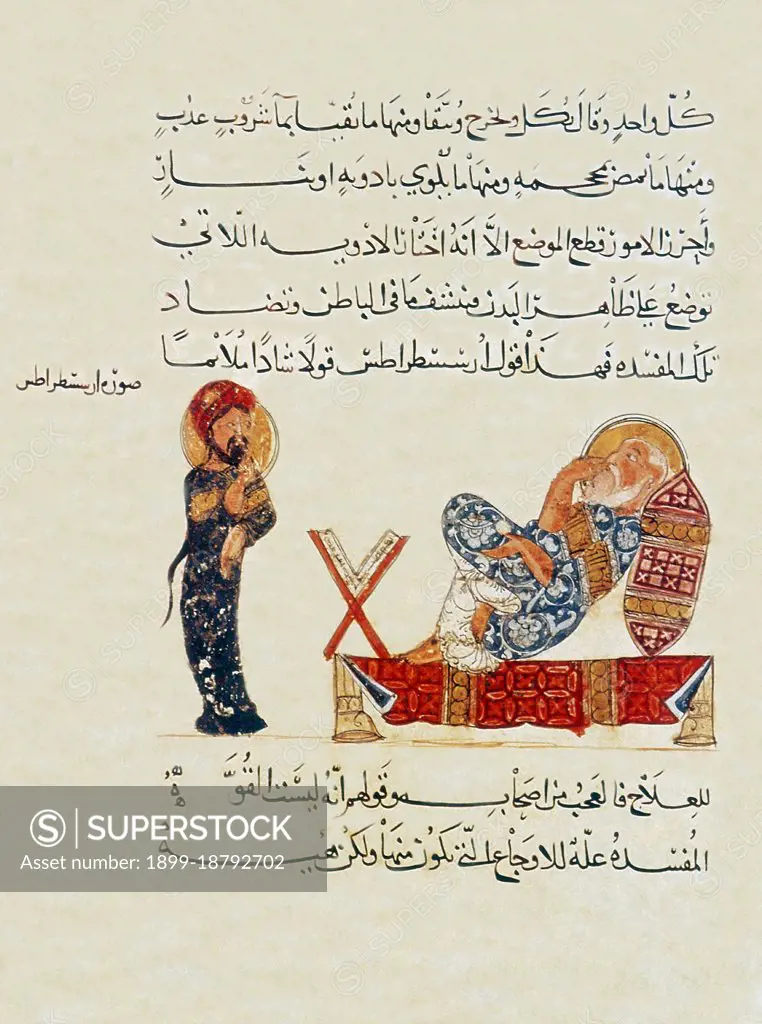 كُلّ واحدٍ وقال بكل ولخرح
ومنها ما ومنها ما بادويهٍ او بنارٍ
وأحرز الامور قطع الموضع الاّ انهُ اختار الادويه اللاتي
توضع على ظاهر البدن فتنشف ما في الباطن وتضاد
تلك المفسده فهذا قول ارسسطراطس قولًا شادًا ملأيمًا
صورة ارسسطراطس
للعلاج فالعجب من اصحابه وقولهم انّهُ ليست القوّه
المفسده علة للاوجاع التي تكون منها ولكن
SUPERSTOCK
Asset number: 1899-18792702